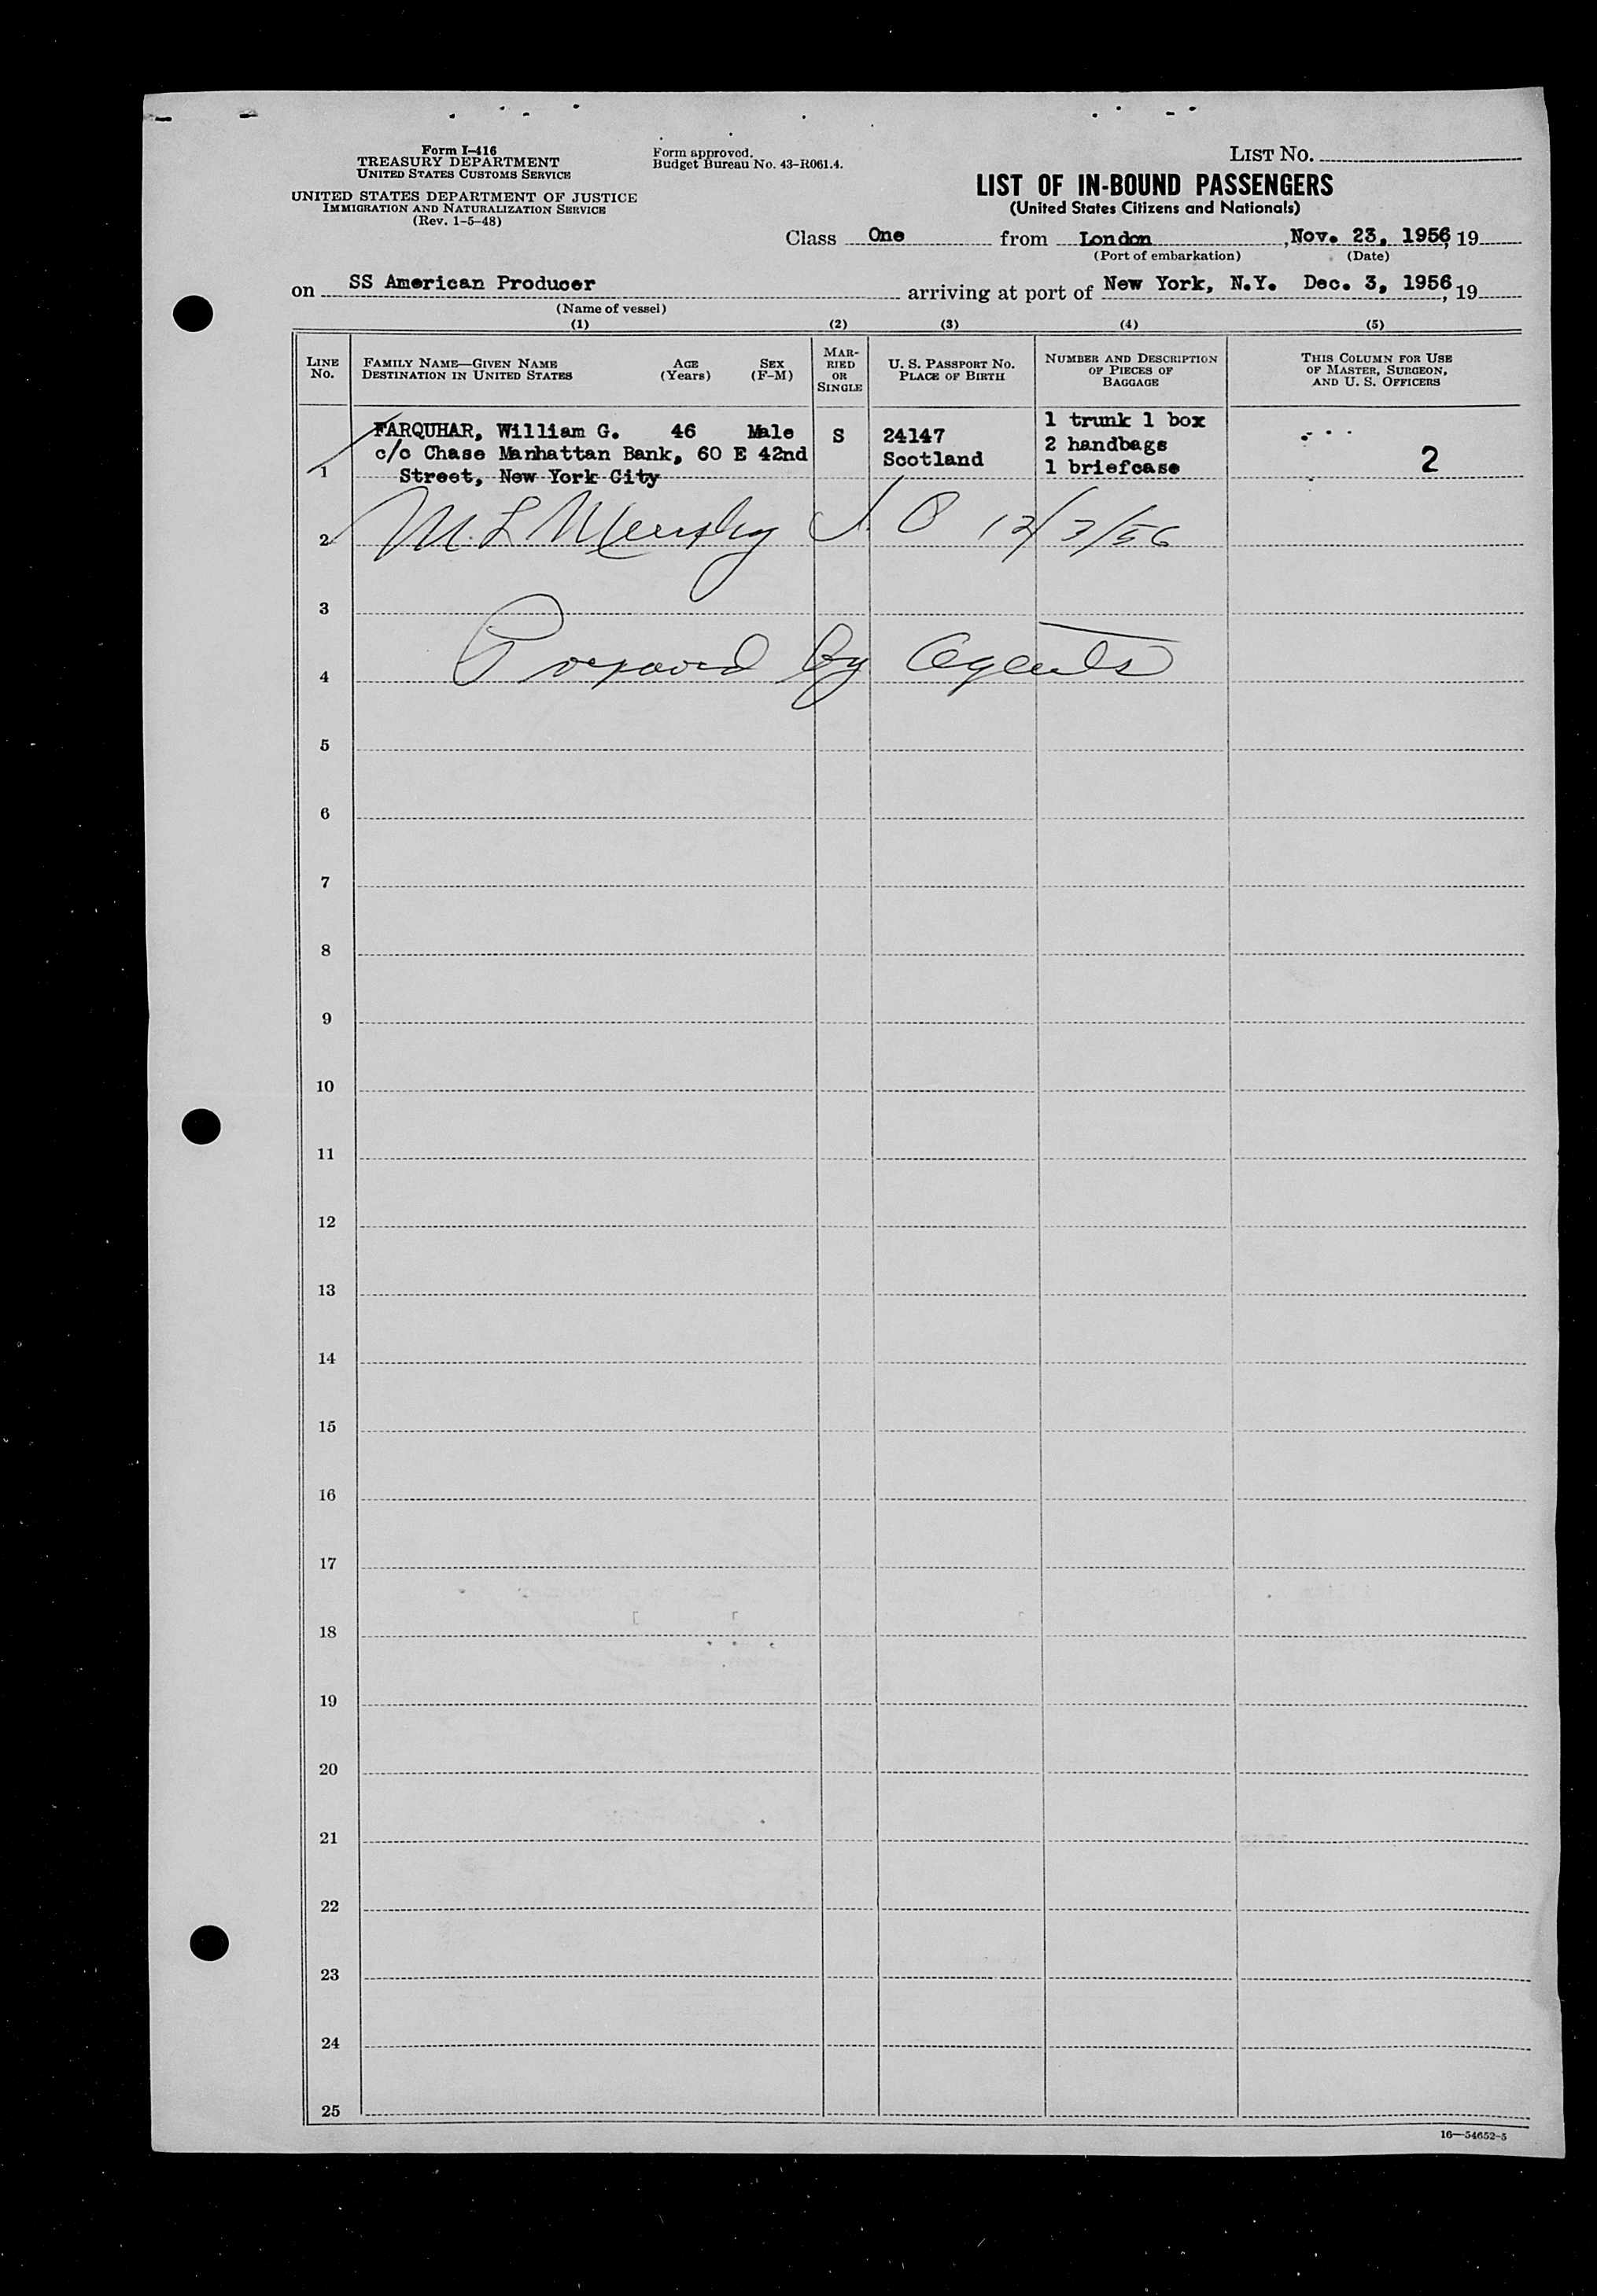 Form I-416
TREASURY DEPARTMENT
UNITED STATES CUSTOMS SERVICE
UNITED STATES DEPARTMENT OF JUSTICE
IMMIGRATION AND NATURALIZATION SERVICE
(Rev. 1-5-48)
Form approved.
Budget Bureau No. 43-R061.4.
LIST No.
LIST OF IN-BOUND PASSENGERS
(United States Citizens and Nationals)
Class One from London, Nov. 23, 1956, 19
(Port of embarkation) (Date)
on SS American Producer arriving at port of New York, N.Y. Dec. 3, 1956, 19
(Name of vessel)
(1) (2) (3) (4) (5)
LINE No.
FAMILY NAME—GIVEN NAME
DESTINATION IN UNITED STATES
AGE (Years)
SEX (F-M)
MARRIED OR SINGLE
U. S. PASSPORT No.
PLACE OF BIRTH
NUMBER AND DESCRIPTION OF PIECES OF BAGGAGE
THIS COLUMN FOR USE OF MASTER, SURGEON, AND U. S. OFFICERS
1 FARQUHAR, William G. 46 Male S 24147 1 trunk 1 box
c/o Chase Manhattan Bank, 60 E 42nd Scotland 2 handbags 2
Street, New York City 1 briefcase
2 M. L. Murphy 12/3/56
3
4 Prepared by Agents
5
6
7
8
9
10
11
12
13
14
15
16
17
18
19
20
21
22
23
24
25
16—54652-5